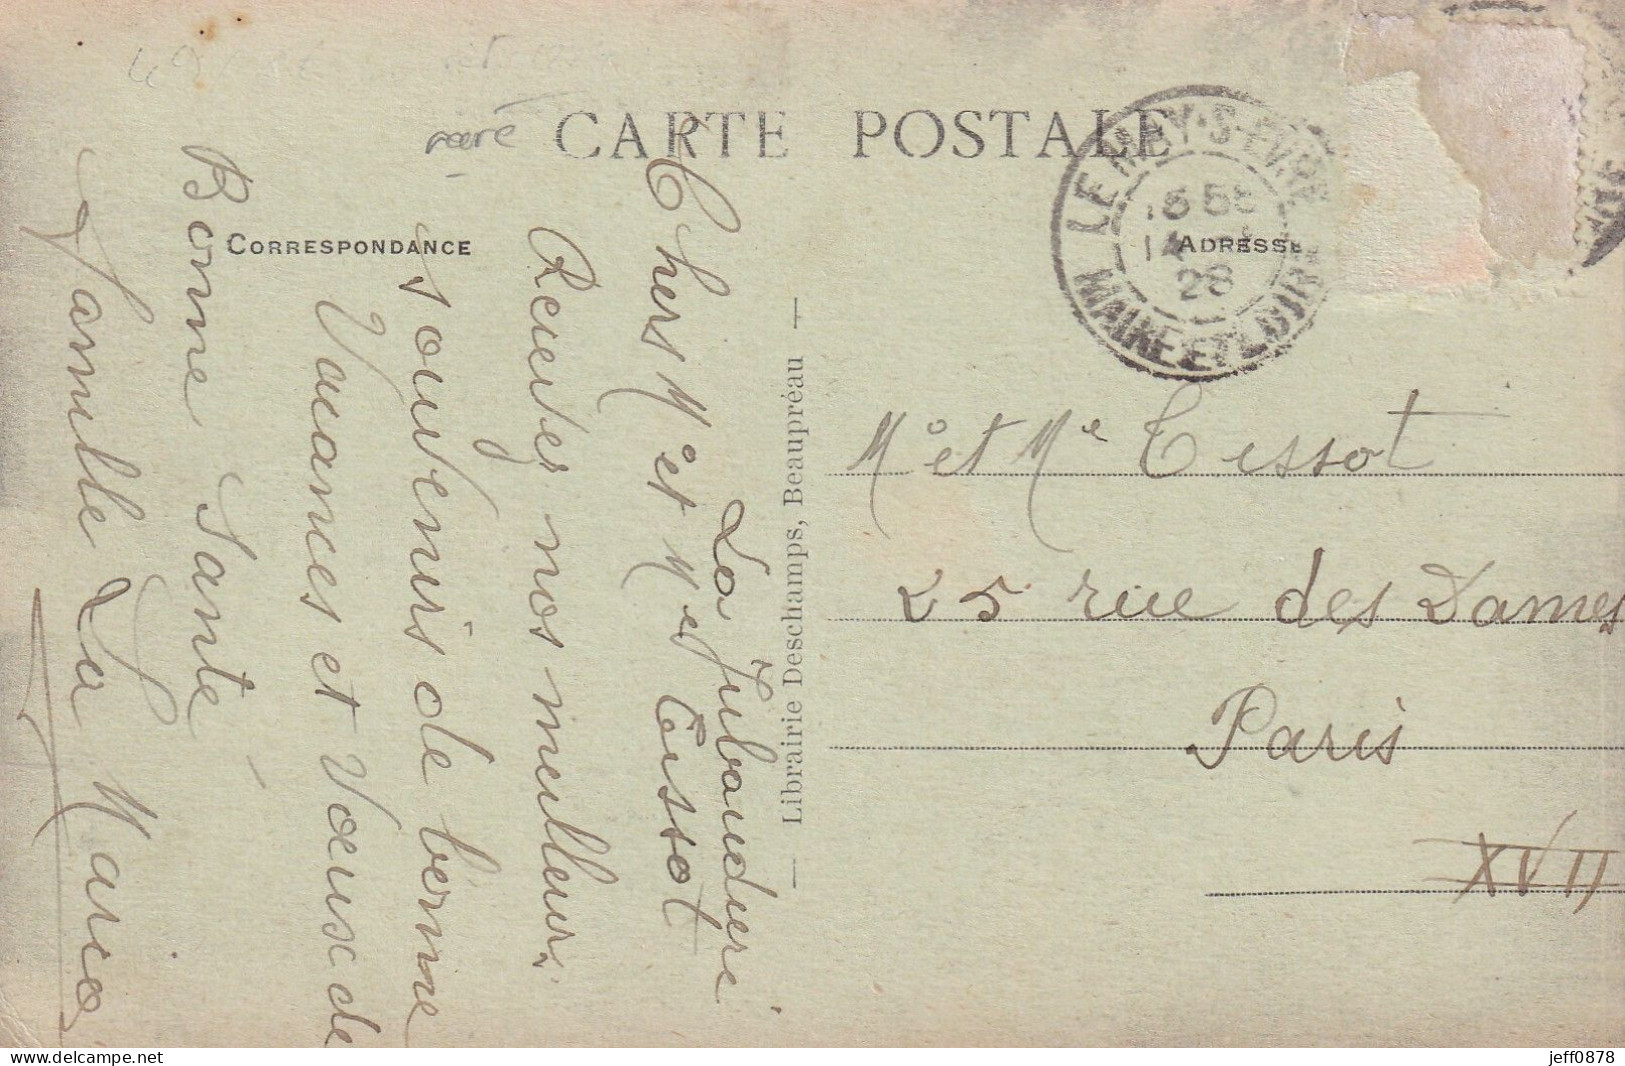 rare
CARTE POSTALE
CORRESPONDANCE
ADRESSE
LE MAY-S-EVRE
14
28
MAINE ET LOIRE
La Jubaudière
Chers Mr et Me Tissot
Recevez nos meilleurs
souvenirs de bonne
Vacances et Vœux de
Bonne Santé
Famille La
— Librairie Deschamps, Beaupréau —
Mr et Me Tissot
25 rue des Dames
Paris
XVII
delcampe.net
jeff0878